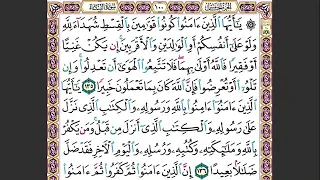 الجزء الخامس ١٠٠ سورة النساء
يَٰٓأَيُّهَا ٱلَّذِينَ ءَامَنُوا۟ كُونُوا۟ قَوَّٰمِينَ بِٱلْقِسْطِ شُهَدَآءَ لِلَّهِ
وَلَوْ عَلَىٰٓ أَنفُسِكُمْ أَوِ ٱلْوَٰلِدَيْنِ وَٱلْأَقْرَبِينَ إِن يَكُنْ غَنِيًّا
أَوْ فَقِيرًا فَٱللَّهُ أَوْلَىٰ بِهِمَا فَلَا تَتَّبِعُوا۟ ٱلْهَوَىٰٓ أَن تَعْدِلُوا۟ وَإِن
تَلْوُۥٓا۟ أَوْ تُعْرِضُوا۟ فَإِنَّ ٱللَّهَ كَانَ بِمَا تَعْمَلُونَ خَبِيرًا ١٣٥ يَٰٓأَيُّهَا
ٱلَّذِينَ ءَامَنُوٓا۟ ءَامِنُوا۟ بِٱللَّهِ وَرَسُولِهِۦ وَٱلْكِتَٰبِ ٱلَّذِى نَزَّلَ
عَلَىٰ رَسُولِهِۦ وَٱلْكِتَٰبِ ٱلَّذِىٓ أَنزَلَ مِن قَبْلُ وَمَن يَكْفُرْ
بِٱللَّهِ وَمَلَٰٓئِكَتِهِۦ وَكُتُبِهِۦ وَرُسُلِهِۦ وَٱلْيَوْمِ ٱلْءَاخِرِ فَقَدْ ضَلَّ
ضَلَٰلًۢا بَعِيدًا ١٣٦ إِنَّ ٱلَّذِينَ ءَامَنُوا۟ ثُمَّ كَفَرُوا۟ ثُمَّ ءَامَنُوا۟